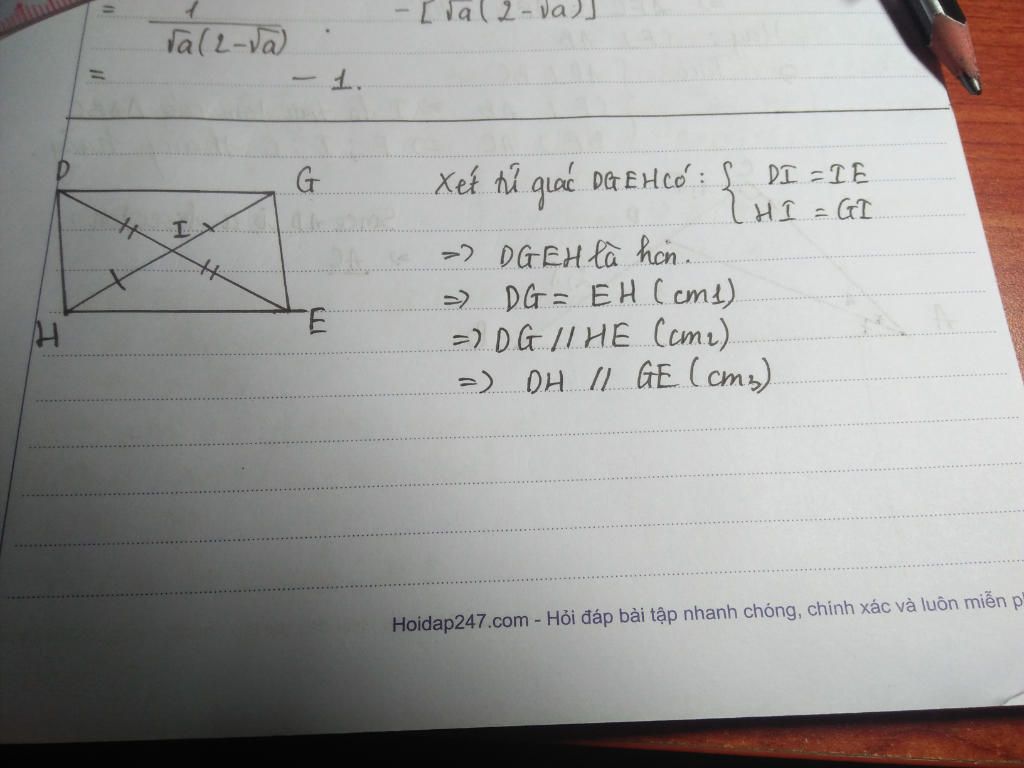 = 1/√a(2-√a) . - [√a(2-√a)]
= - 1.
D G
I
H E
Xét tứ giác DGEH có: { DI = IE
HI = GI
=> DGEH là hcn.
=> DG = EH (cm1)
=> DG // HE (cm2)
=> DH // GE (cm3)
Hoidap247.com - Hỏi đáp bài tập nhanh chóng, chính xác và luôn miễn ph